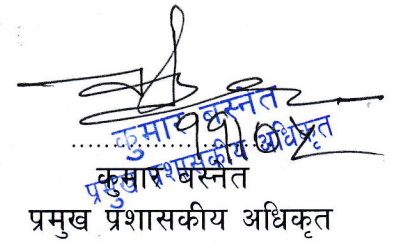 कुमार बस्नेत
प्रमुख प्रशासकीय अधिकृत
कुमार बस्नेत
प्रमुख प्रशासकीय अधिकृत